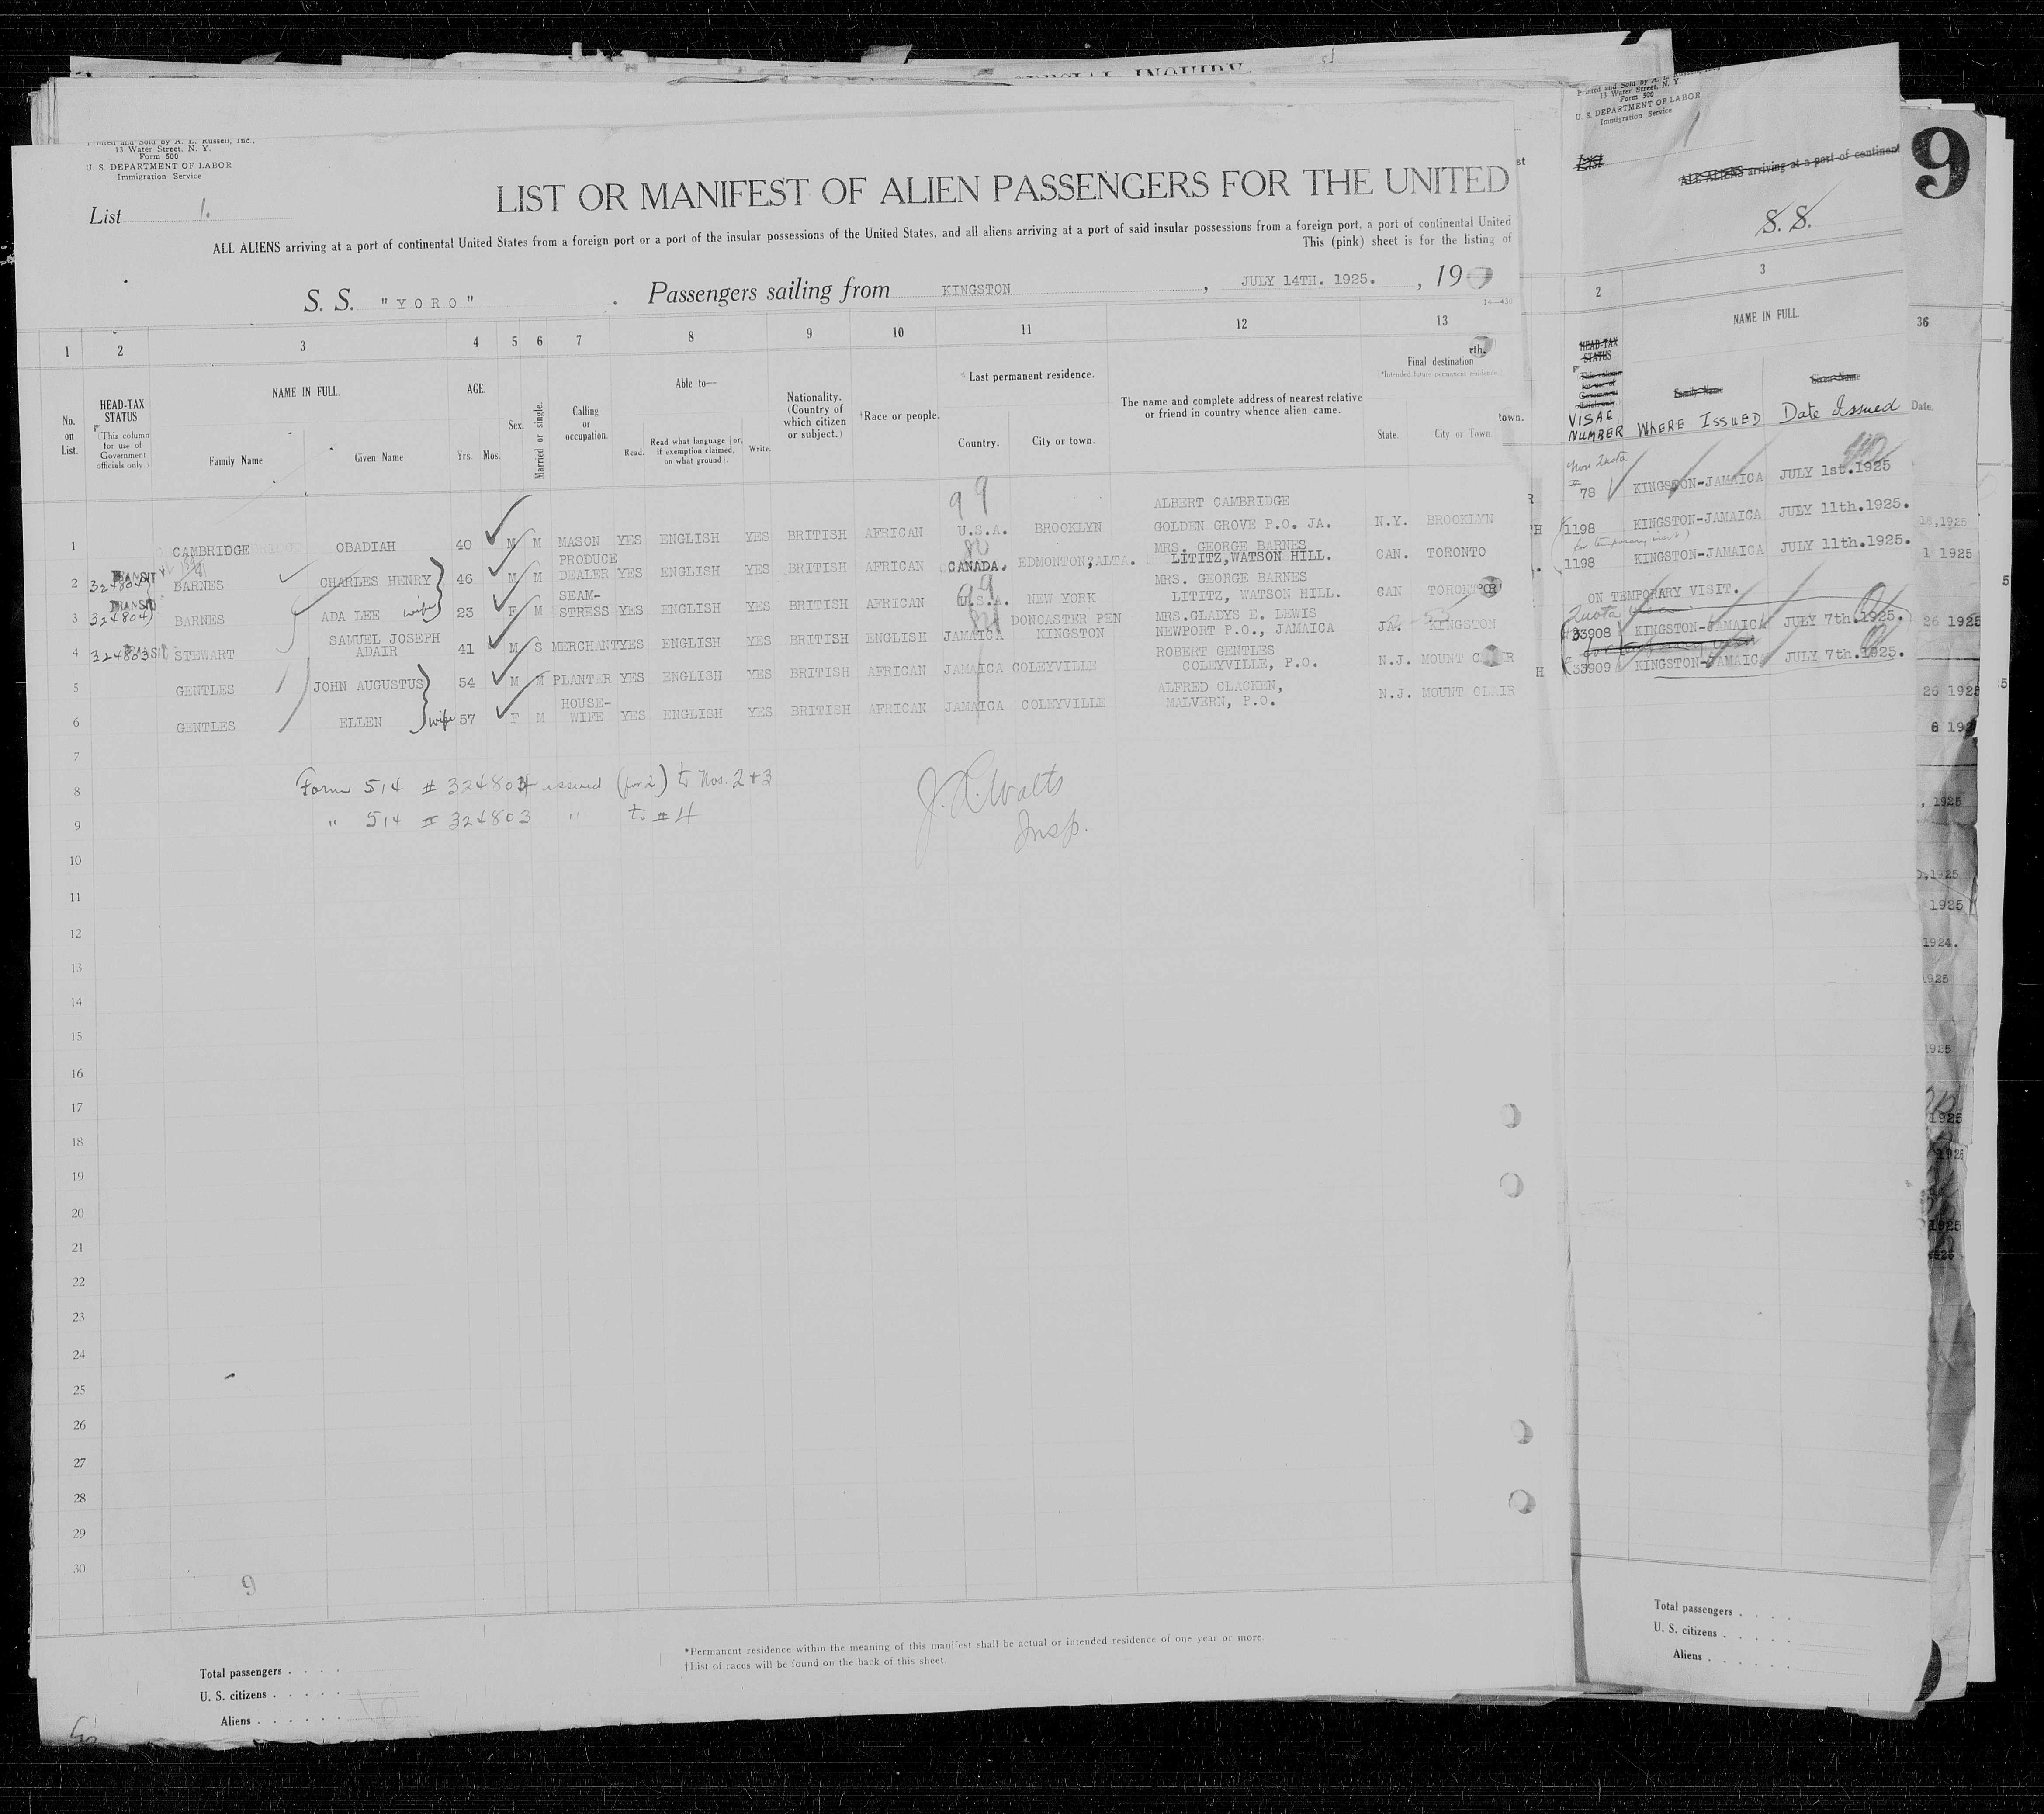 Printed and Sold by A. L. Russell, Inc.,
13 Water Street, N. Y.
Form 500
U. S. DEPARTMENT OF LABOR
Immigration Service
List 1.
LIST OR MANIFEST OF ALIEN PASSENGERS FOR THE UNITED
ALL ALIENS arriving at a port of continental United States from a foreign port or a port of the insular possessions of the United States, and all aliens arriving at a port of said insular possessions from a foreign port, a port of continental United
This (pink) sheet is for the listing of
S. S. "YORO" Passengers sailing from KINGSTON, JULY 14TH. 1925. , 19
14—430
1 2 3 4 5 6 7 8 9 10 11 12 13
No. on List.
HEAD-TAX STATUS
(This column for use of Government officials only)
NAME IN FULL.
Family Name Given Name
AGE.
Yrs. Mos.
Sex.
Married or single.
Calling or occupation.
Able to—
Read. Read what language [or, if exemption claimed, on what ground]. Write.
Nationality. (Country of which citizen or subject.)
†Race or people.
*Last permanent residence.
Country. City or town.
The name and complete address of nearest relative or friend in country whence alien came.
Final destination
(*Intended future permanent residence)
State. City or Town.
99
1 CAMBRIDGE OBADIAH 40 M M MASON YES ENGLISH YES BRITISH AFRICAN U.S.A. BROOKLYN ALBERT CAMBRIDGE GOLDEN GROVE P.O. JA. N.Y. BROOKLYN
80
2 TRANSIT 324804 BARNES CHARLES HENRY 46 M M PRODUCE DEALER YES ENGLISH YES BRITISH AFRICAN CANADA. EDMONTON, ALTA. MRS. GEORGE BARNES LITITZ, WATSON HILL. CAN. TORONTO
99
3 TRANSIT 324804 BARNES ADA LEE wife 23 F M SEAM-STRESS YES ENGLISH YES BRITISH AFRICAN U.S.A. NEW YORK MRS. GEORGE BARNES LITITZ, WATSON HILL. CAN TORONTO
4 TRANSIT 324803 STEWART SAMUEL JOSEPH ADAIR 41 M S MERCHANT YES ENGLISH YES BRITISH ENGLISH JAMAICA DONCASTER PEN KINGSTON MRS.GLADYS E. LEWIS NEWPORT P.O., JAMAICA JA. KINGSTON
5 GENTLES JOHN AUGUSTUS 54 M M PLANTER YES ENGLISH YES BRITISH AFRICAN JAMAICA COLEYVILLE ROBERT GENTLES COLEYVILLE, P.O. N.J. MOUNT CLAIR
6 GENTLES ELLEN wife 57 F M HOUSE-WIFE YES ENGLISH YES BRITISH AFRICAN JAMAICA COLEYVILLE ALFRED CLACKEN, MALVERN, P.O. N.J. MOUNT CLAIR
7
8 Form 514 # 324804 issued (for 2) to Nos. 2 + 3
9 " 514 # 324803 " to # 4
J. R. Watts
Insp.
10
11
12
13
14
15
16
17
18
19
20
21
22
23
24
25
26
27
28
29
30
9
*Permanent residence within the meaning of this manifest shall be actual or intended residence of one year or more.
†List of races will be found on the back of this sheet.
Total passengers . . . .
U. S. citizens . . . . .
Aliens . . . . . .
SPECIAL INQUIRY
Printed and Sold by A. L. Russell, Inc.,
13 Water Street, N. Y.
Form 500
U. S. DEPARTMENT OF LABOR
Immigration Service
1
List
ALL ALIENS arriving at a port of continent
S. S.
2 3
HEAD-TAX STATUS
NAME IN FULL.
Family Name Given Name
VISAE NUMBER WHERE ISSUED Date Issued
Non Quota
78 KINGSTON-JAMAICA JULY 1st.1925
1198 KINGSTON-JAMAICA JULY 11th.1925.
(for temporary visit)
1198 KINGSTON-JAMAICA JULY 11th.1925.
ON TEMPORARY VISIT.
Quota
33908 KINGSTON-JAMAICA JULY 7th.1925.
33909 KINGSTON-JAMAICA JULY 7th.1925.
Total passengers . . . .
U. S. citizens . . . . .
Aliens . . . . . .
9
36
Date.
1 1925
26 1925
26 1925
1925
1925
1924.
1925
1925
1925